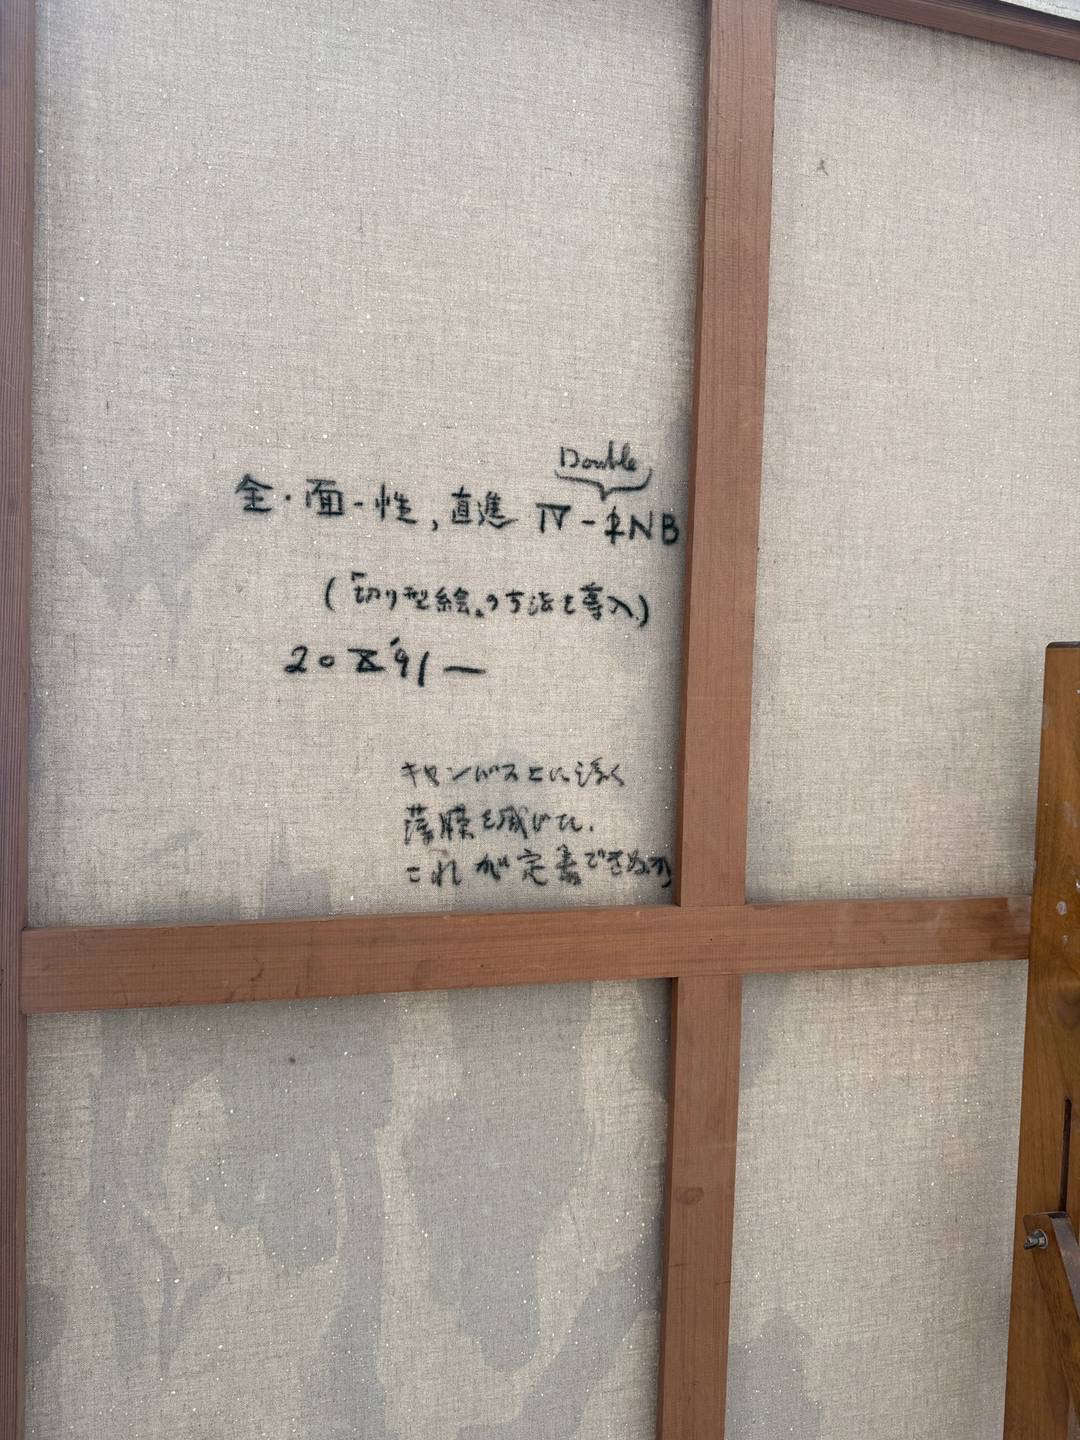 Double
全・面-性, 直進 Ⅳ- NB
(「切り型絵」の方法を導入)
20 Ⅹ '91 —
キャンバス上に浮く
薄膜を感じた.
これが定着できぬか